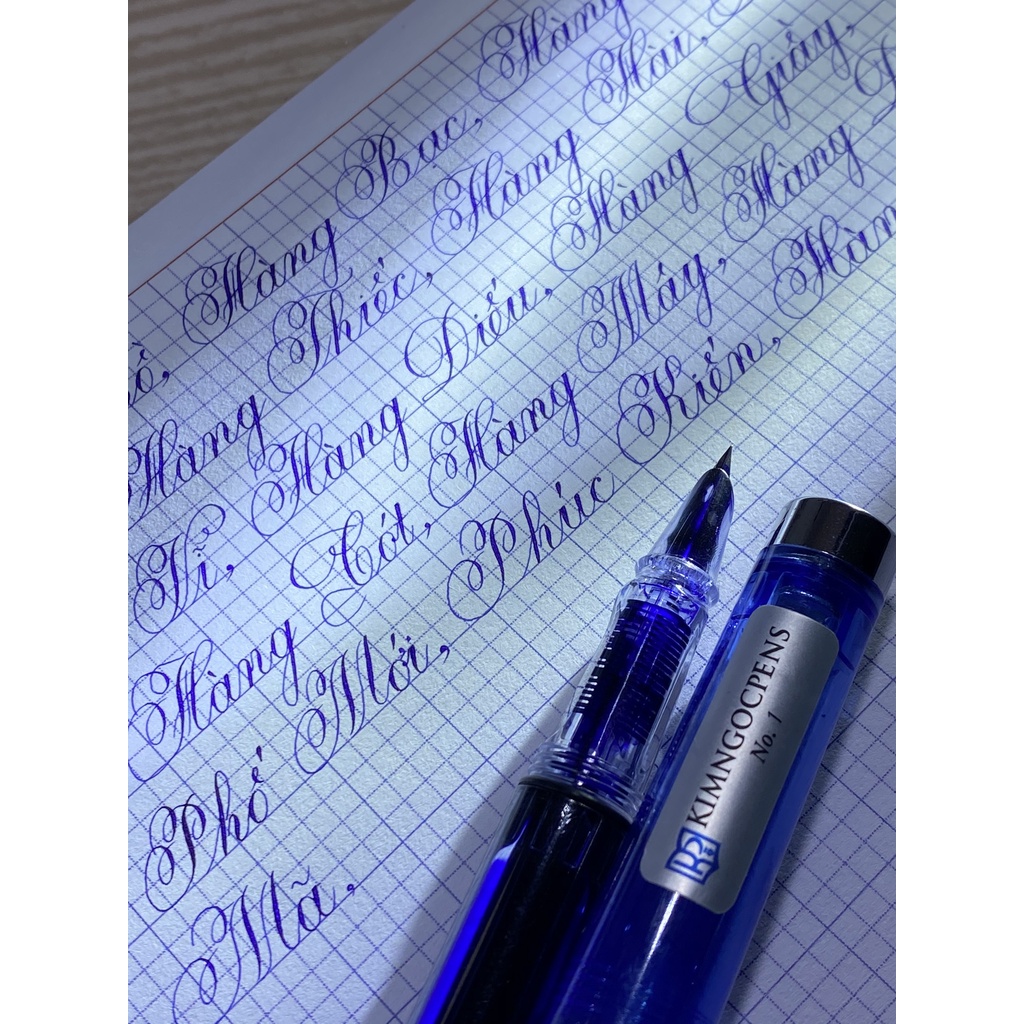 Hàng Bac, Hàng
Hàng Thiếc, Hàng Hài,
Vĩ, Hàng Điếu, Hàng Giầy,
Hàng Cót, Hàng Mây, Hàng
Phố Mới, Phúc Kiến,
Mã,
KIMNGOCPENS
No. 1